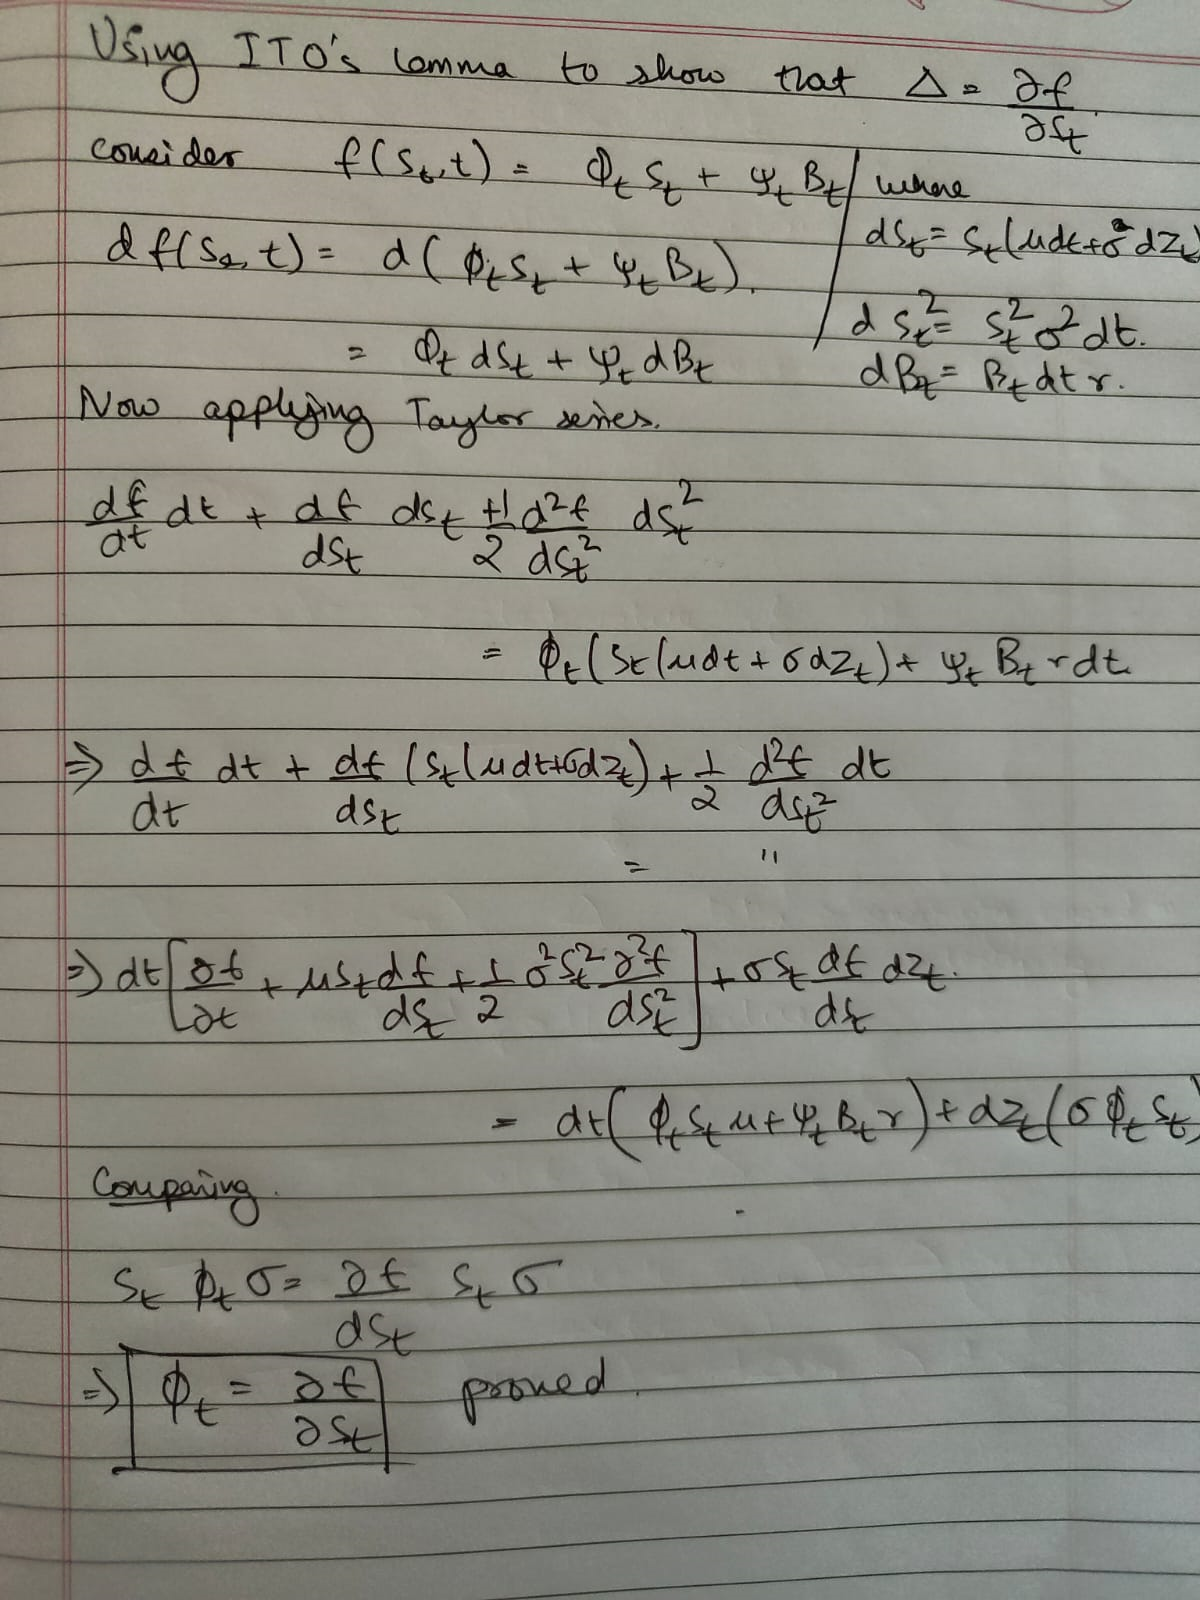 Using ITO's lemma to show that Δ = ∂f/∂St
consider f(St,t) = ϕt St + ψt Bt / where
dSt = St(μdt+σdZt)
df(St, t) = d(ϕt St + ψt Bt).
dSt² = St² σ² dt.
= ϕt dSt + ψt dBt
dBt = Bt dt r.
Now applying Taylor series.
df/dt dt + df/dSt dSt + 1/2 d²f/dSt² dSt²
= ϕt(St(μdt + σdZt) + ψt Bt r dt
⇒ df/dt dt + df/dSt (St(μdt+σdZt) + 1/2 d²f/dSt² dt
= "
⇒ dt[∂f/∂t + μSt df/dSt + 1/2 σ²St² ∂²f/dSt²] + σSt df/dSt dZt.
= dt(ϕt St μ + ψt Bt r) + dZt(σ ϕt St)
Comparing.
St ϕt σ = ∂f/dSt St σ
⇒ ϕt = ∂f/∂St proved.